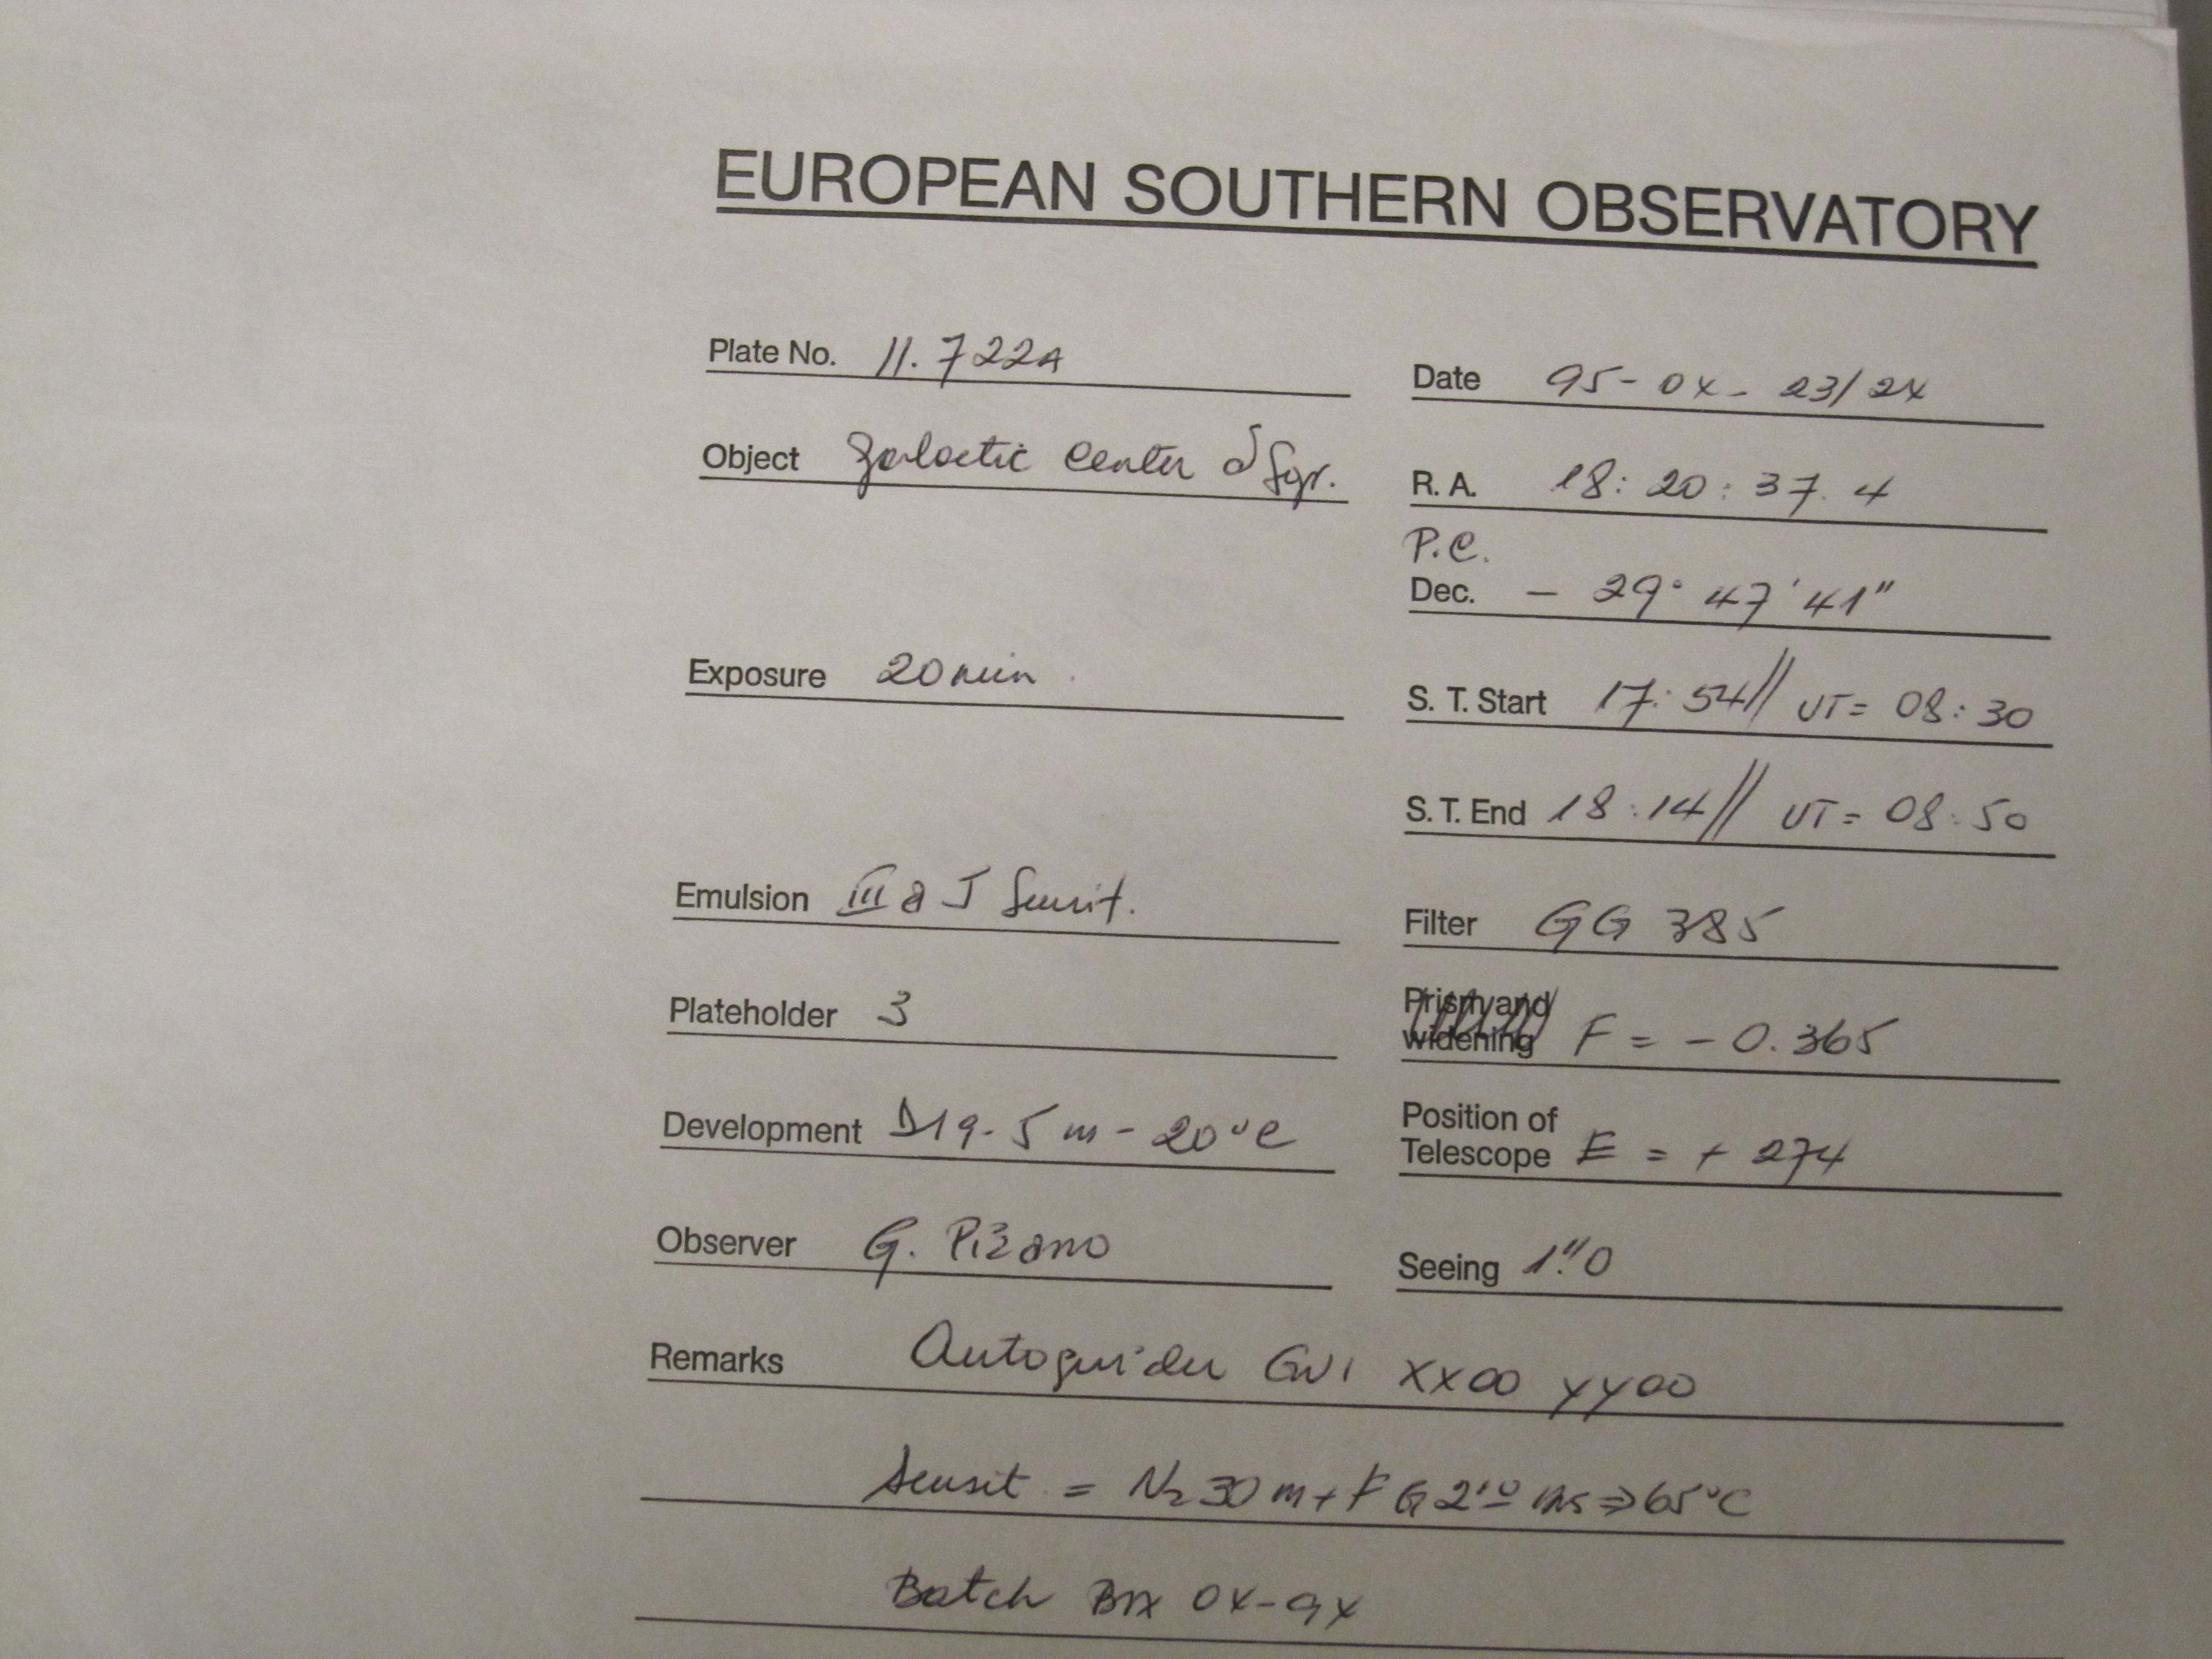 EUROPEAN SOUTHERN OBSERVATORY
Plate No. 11.722A
Date 95-04-23/24
Object galactic center δ Sgr.
R. A. 18:20:37.4
P.C.
Dec. - 29° 47' 41"
Exposure 20 min
S. T. Start 17:54// UT = 08:30
S. T. End 18:14// UT = 08:50
Emulsion III a J Sensit.
Filter GG 385
Plateholder 3
Prism and
widening F = - 0.365
Development D19-5m-20°C
Position of
Telescope E = + 274
Observer G. Pizarro
Seeing 1".0
Remarks Autoguider GV1 XX00 YY00
Sensit = N2 30 m + F G 65°C
Batch Box 04-94